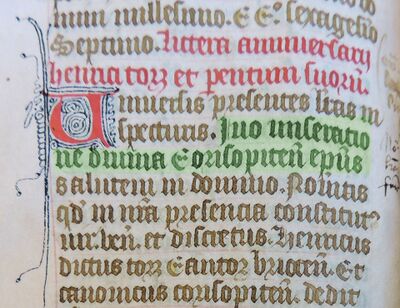 num millesimo. CC°. sexagesio
Septimo. Littera anniversarii
henrici torz et pentum suorum.
Universis presentes litas in
specturis. Ivo miseratio
ne divina Corisopiten epus
salutem in domino. Noveritis
qd in nra presencia constitut9
vir. ven. et discretus. Henricus
dictus torz Cantor brioceñ. Et
canonicus corisopiteñ. Dedit